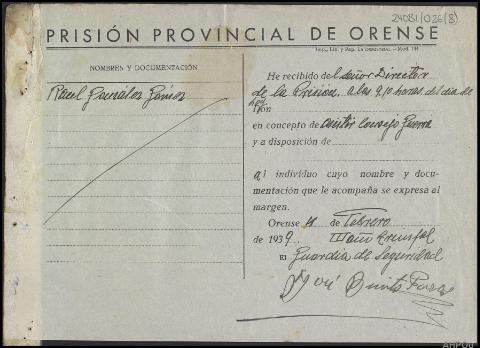 24081/026(8)
PRISIÓN PROVINCIAL DE ORENSE
Imp., Lib. y Pap. La Industrial.—Mod. 144
NOMBRES Y DOCUMENTACIÓN
Raul González
He recibido del señor Director
de la Prisión, a las 9,10 horas del día de
hoy
en concepto de asistir Consejo Guerra
y a disposición de
al individuo cuyo nombre y docu-
mentación que le acompaña se expresa al
margen.
Orense de Febrero
de 1939 III año triunfal
El Guardia de Seguridad
José